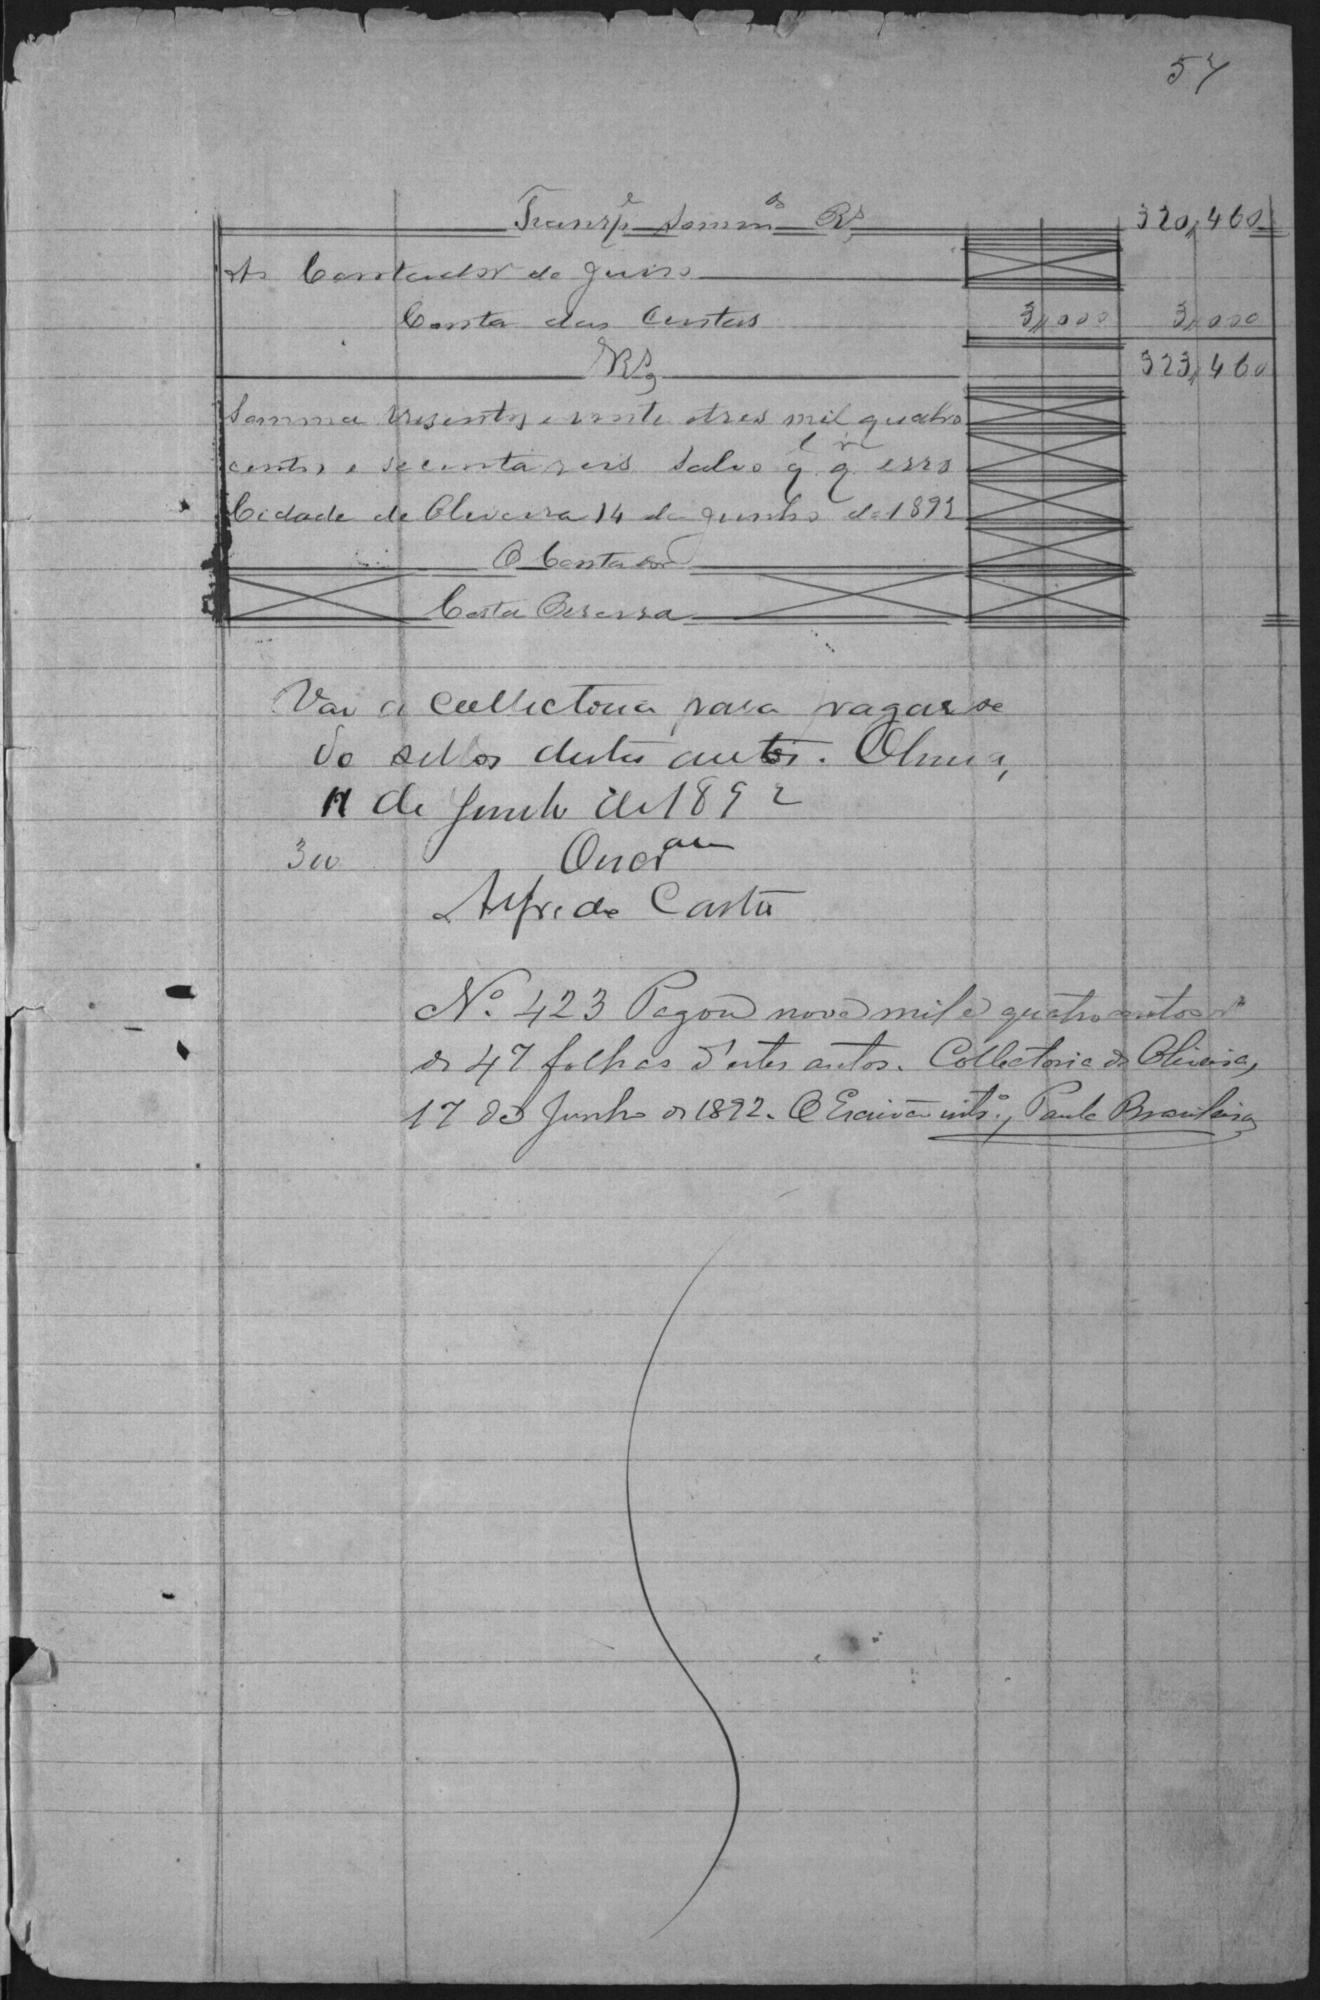 57
Transp.e Somm.do Rs 320,460
Ao Contador do Juiso
Conta das Custas 3,,000 3,,000
Rs 323,460
Somma tresentos e vinte e tres mil quatro
centos e secenta reis Salvo q.l q.r erro
Cidade de Oliveira 14 de Junho de 1892
O Contador
Costa Beserra
Vai a collectoria para pagarse
do sellos destes autos. Olivr.a,
de Junho de 1892
300
Alfredo Casto
No. 423 Pagou nove mil e quatrocentos rs
de 47 folhas d'estes autos. Collectoria de Oliveira,
17 de Junho de 1892. O Escrivão int.o, Paula Brasileiro